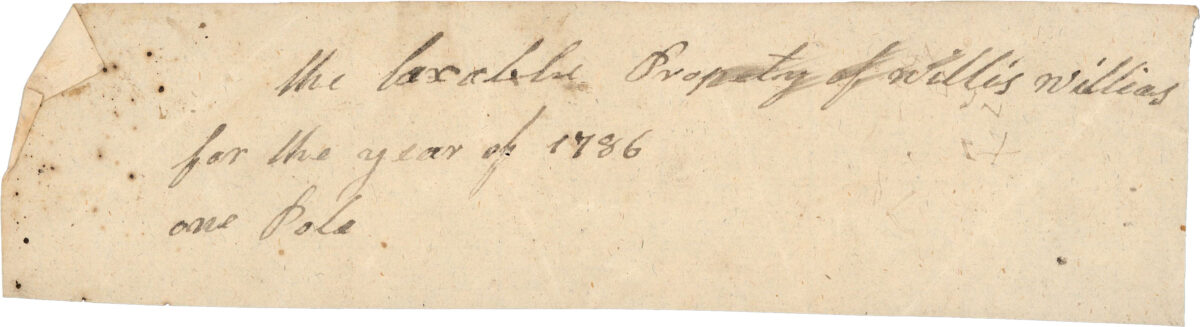 the taxable Propety of Willis Willias
for the year of 1786
one Pole